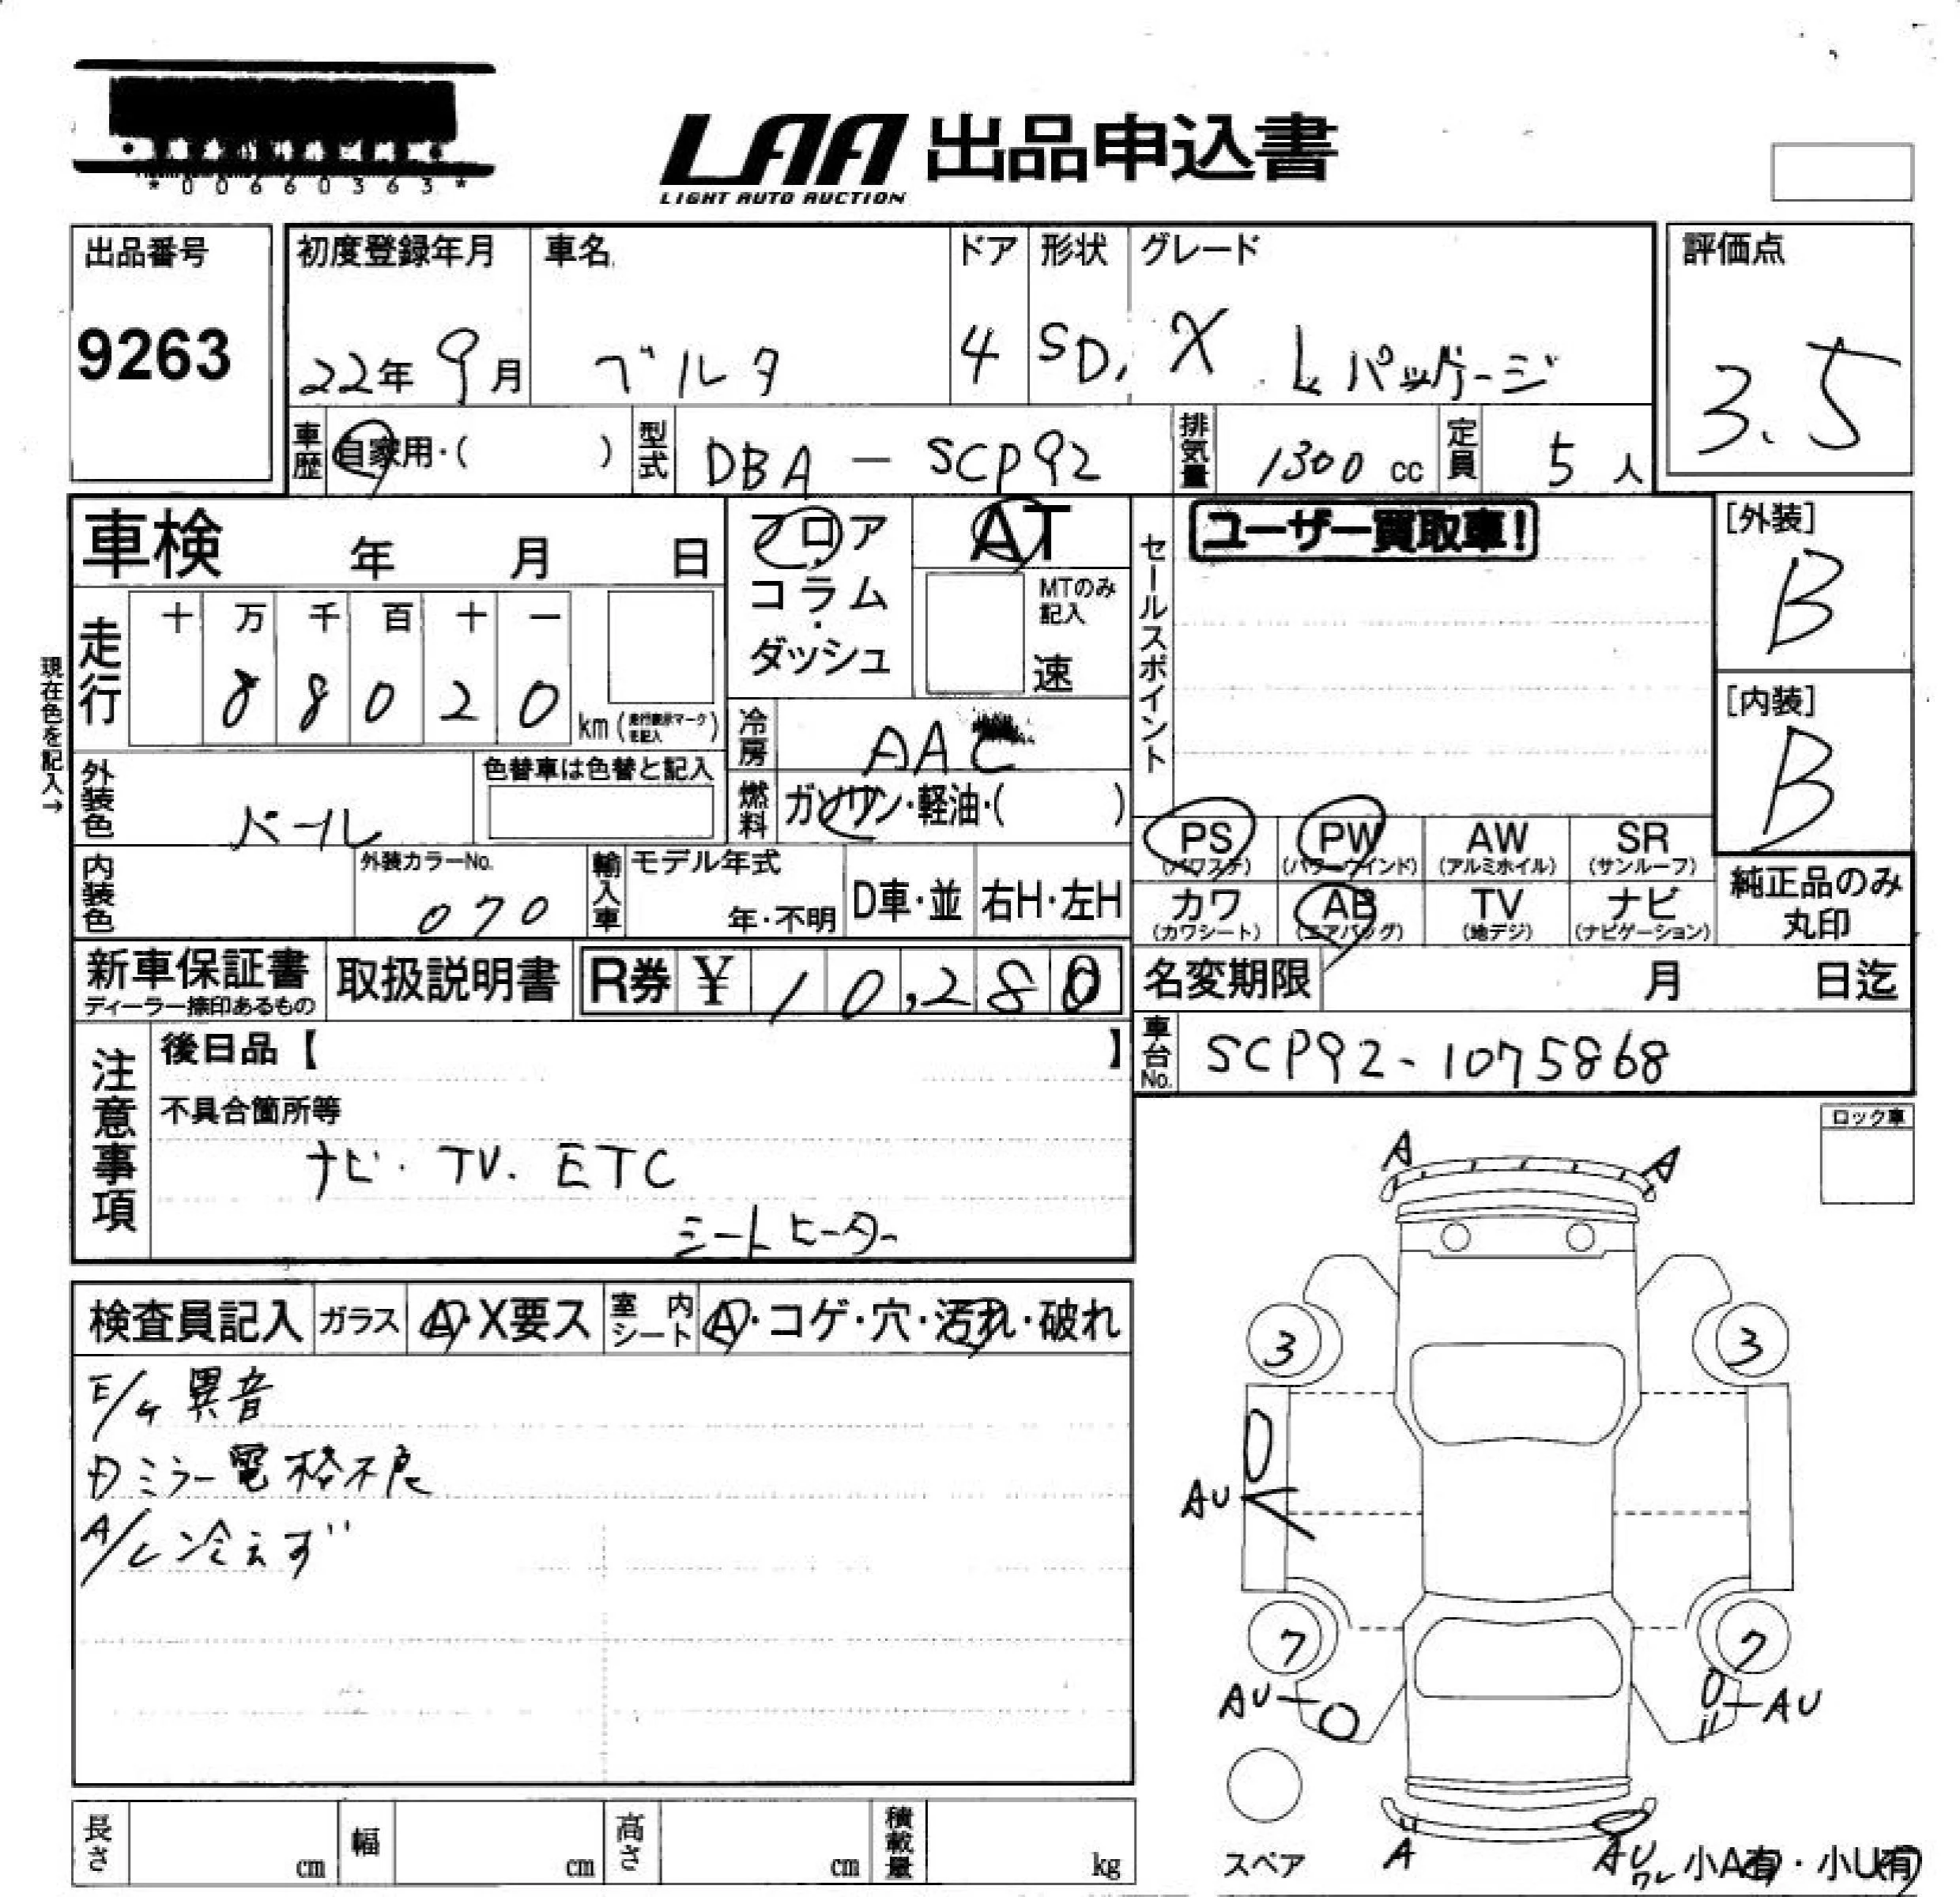 *00660363*
LAA 出品申込書
LIGHT AUTO AUCTION
出品番号
9263
初度登録年月
22年 9月
車名
ベルタ
ドア
4
形状
SD.
グレード
X Lパッケージ
評価点
3.5
車歴
自家用・( )
型式
DBA-SCP92
排気量
1300 cc
定員
5 人
車検 年 月 日
フロア・
コラム・
ダッシュ
AT
MTのみ
記入
速
セールスポイント
ユーザー買取車!
[外装]
B
[内装]
B
現在色を記入→
走行
十 万 千 百 十 一
8 8 0 2 0
km (走行表示マークを記入)
冷房
AAC
外装色
パール
色替車は色替と記入
燃料
ガソリン・軽油・( )
PS
(パワステ)
PW
(パワーウインド)
AW
(アルミホイル)
SR
(サンルーフ)
内装色
外装カラーNo.
070
輸入車
モデル年式
年・不明
D車・並
右H・左H
カワ
(カワシート)
AB
(エアバッグ)
TV
(地デジ)
ナビ
(ナビゲーション)
純正品のみ
丸印
新車保証書
ディーラー捺印あるもの
取扱説明書
R券 ¥ 10,280
名変期限 月 日迄
車台No.
SCP92-1075868
注意事項
後日品【 】
不具合箇所等
ナビ・TV.ETC
シートヒーター
ロック車
検査員記入
ガラス
A・X要ス
室内シート
A・コゲ・穴・汚れ・破れ
E/G 異音
Dミラー電格不良
A/C 冷えず
A A
3 3
AU
7 7
AU AU
スペア
A
AU
ワレ
小A有・小U有
長さ cm
幅 cm
高さ cm
積載量 kg